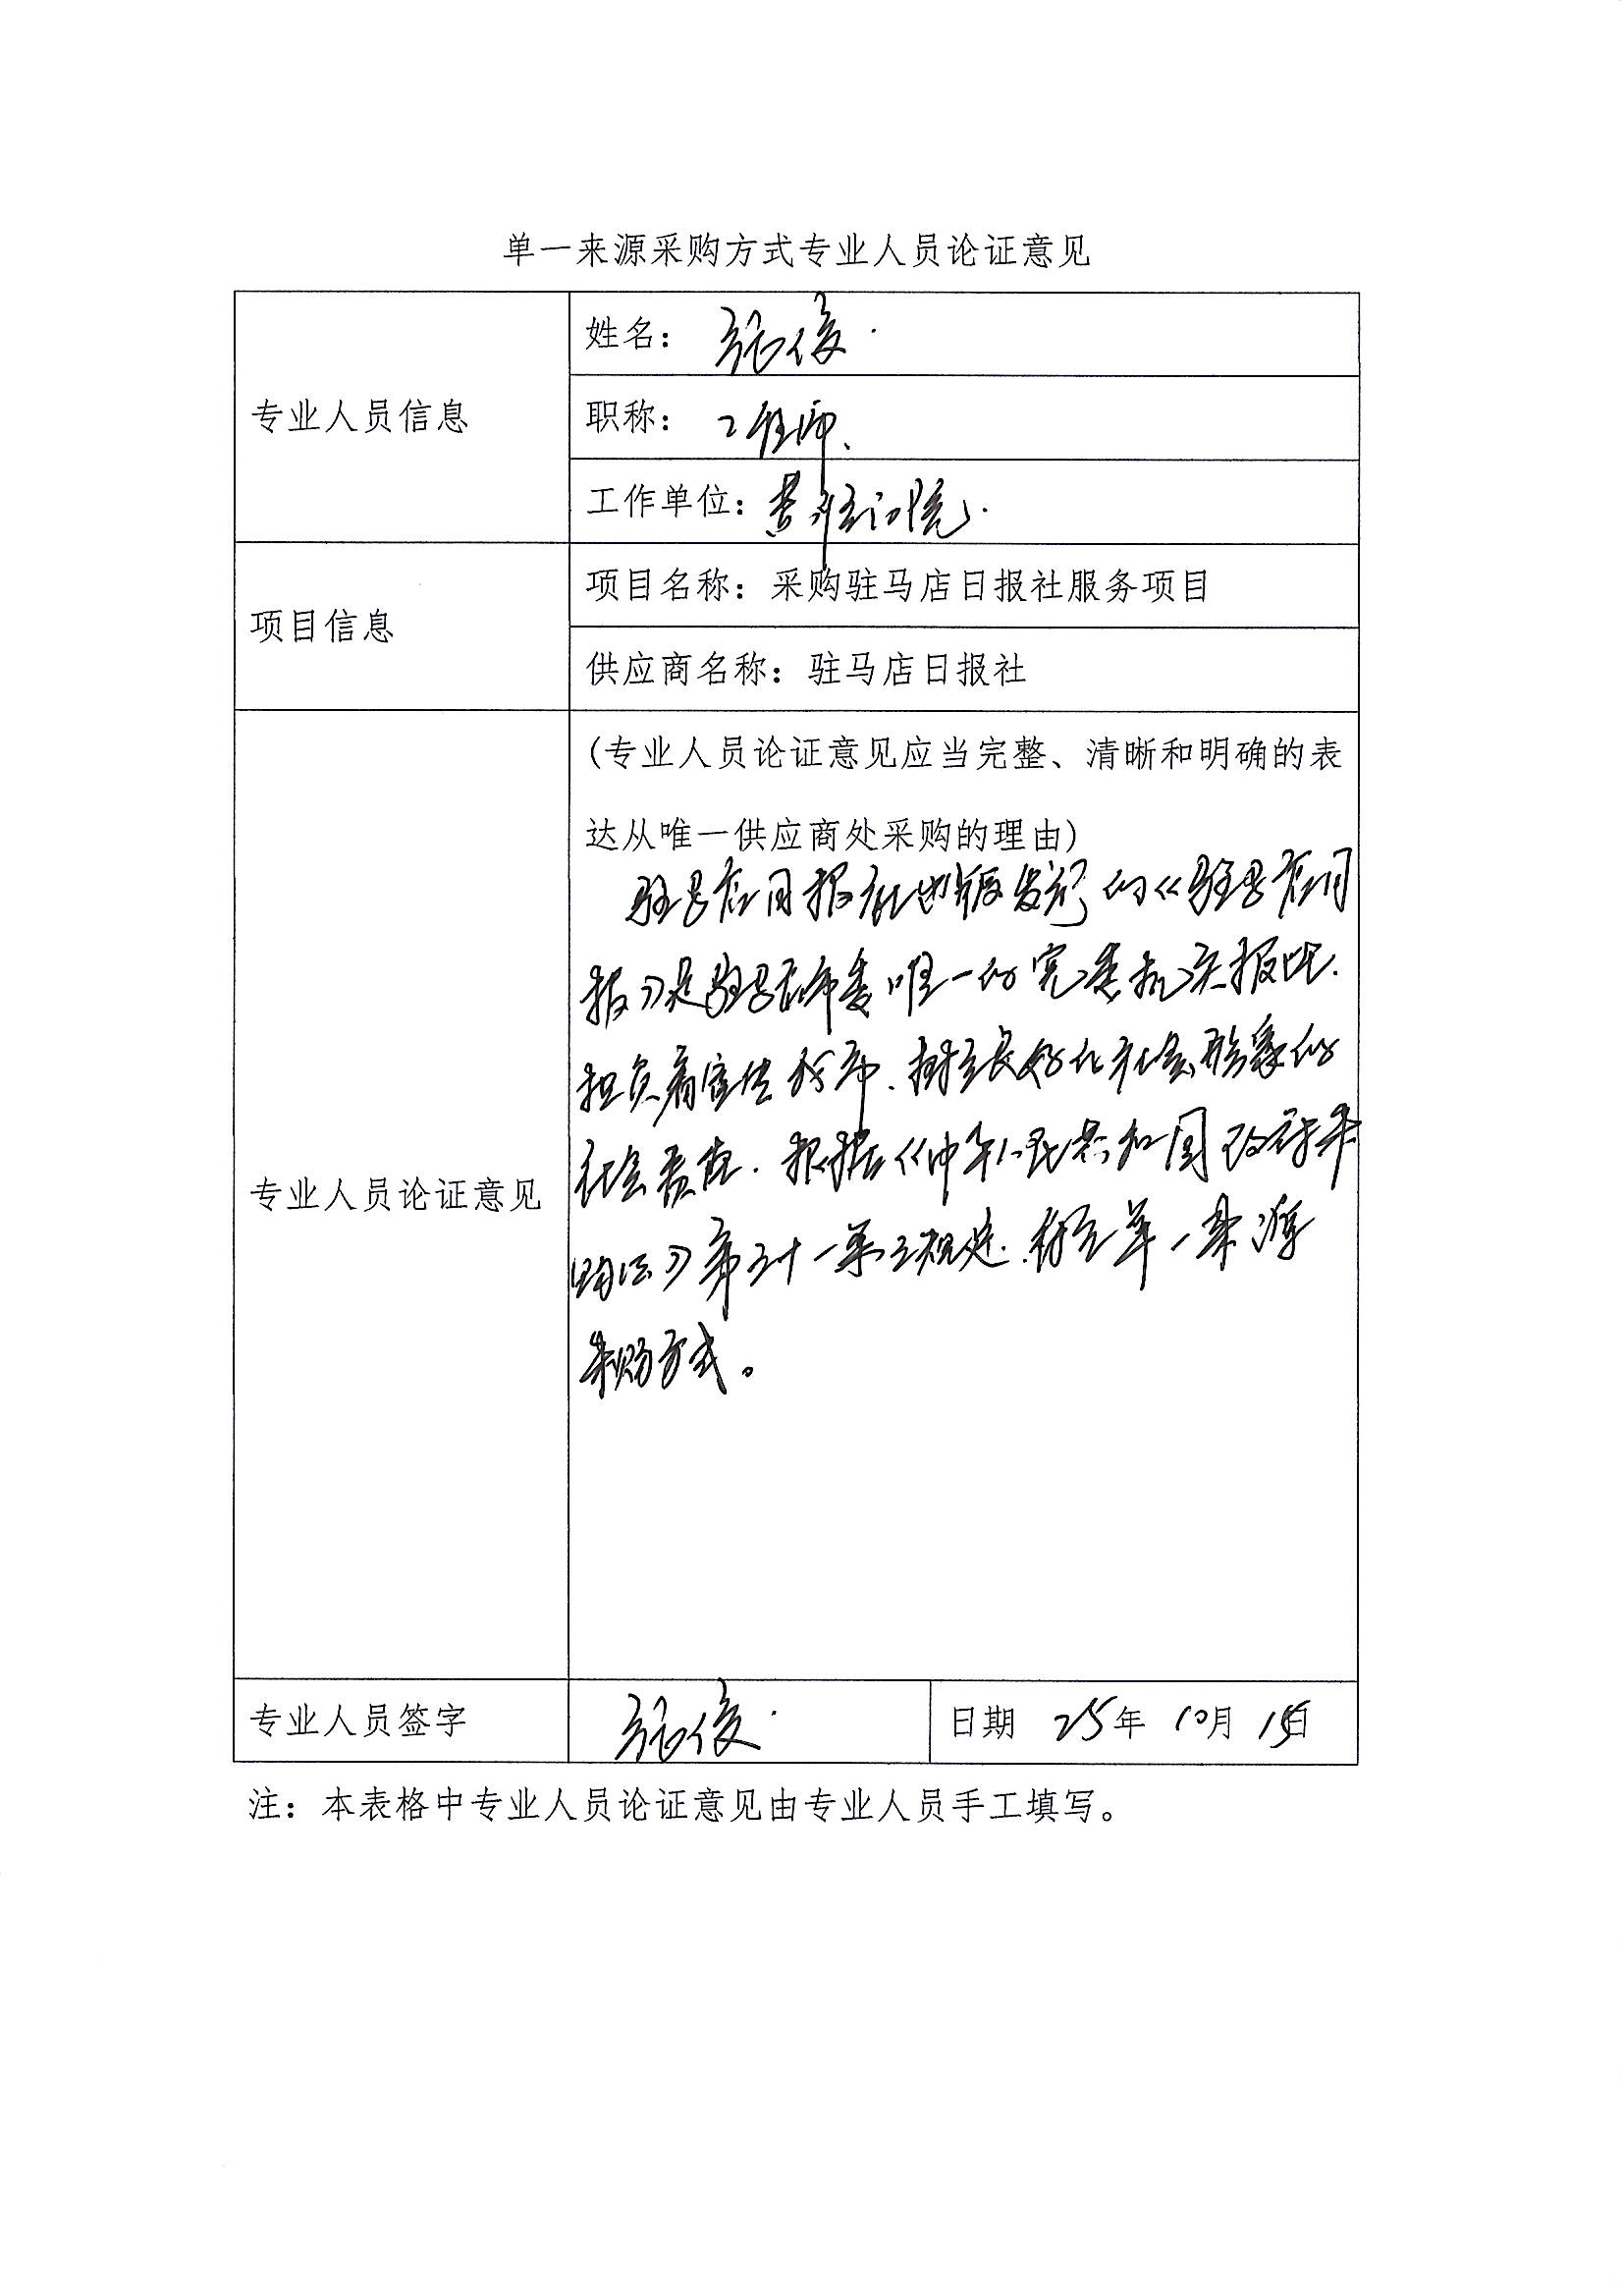 单一来源采购方式专业人员论证意见
专业人员信息
姓名：张俊
职称：工程师
工作单位：黄淮学院
项目信息
项目名称：采购驻马店日报社服务项目
供应商名称：驻马店日报社
专业人员论证意见
(专业人员论证意见应当完整、清晰和明确的表
达从唯一供应商处采购的理由)
驻马店日报社出版发行的《驻马店日
报》是驻马店市委唯一的党委机关报，
担负着宣传我市、树立良好社会形象的
社会责任。根据《中华人民共和国政府采
购法》第三十一条之规定，符合单一来源
采购方式。
专业人员签字
张俊
日期 25年 10月 15日
注：本表格中专业人员论证意见由专业人员手工填写。